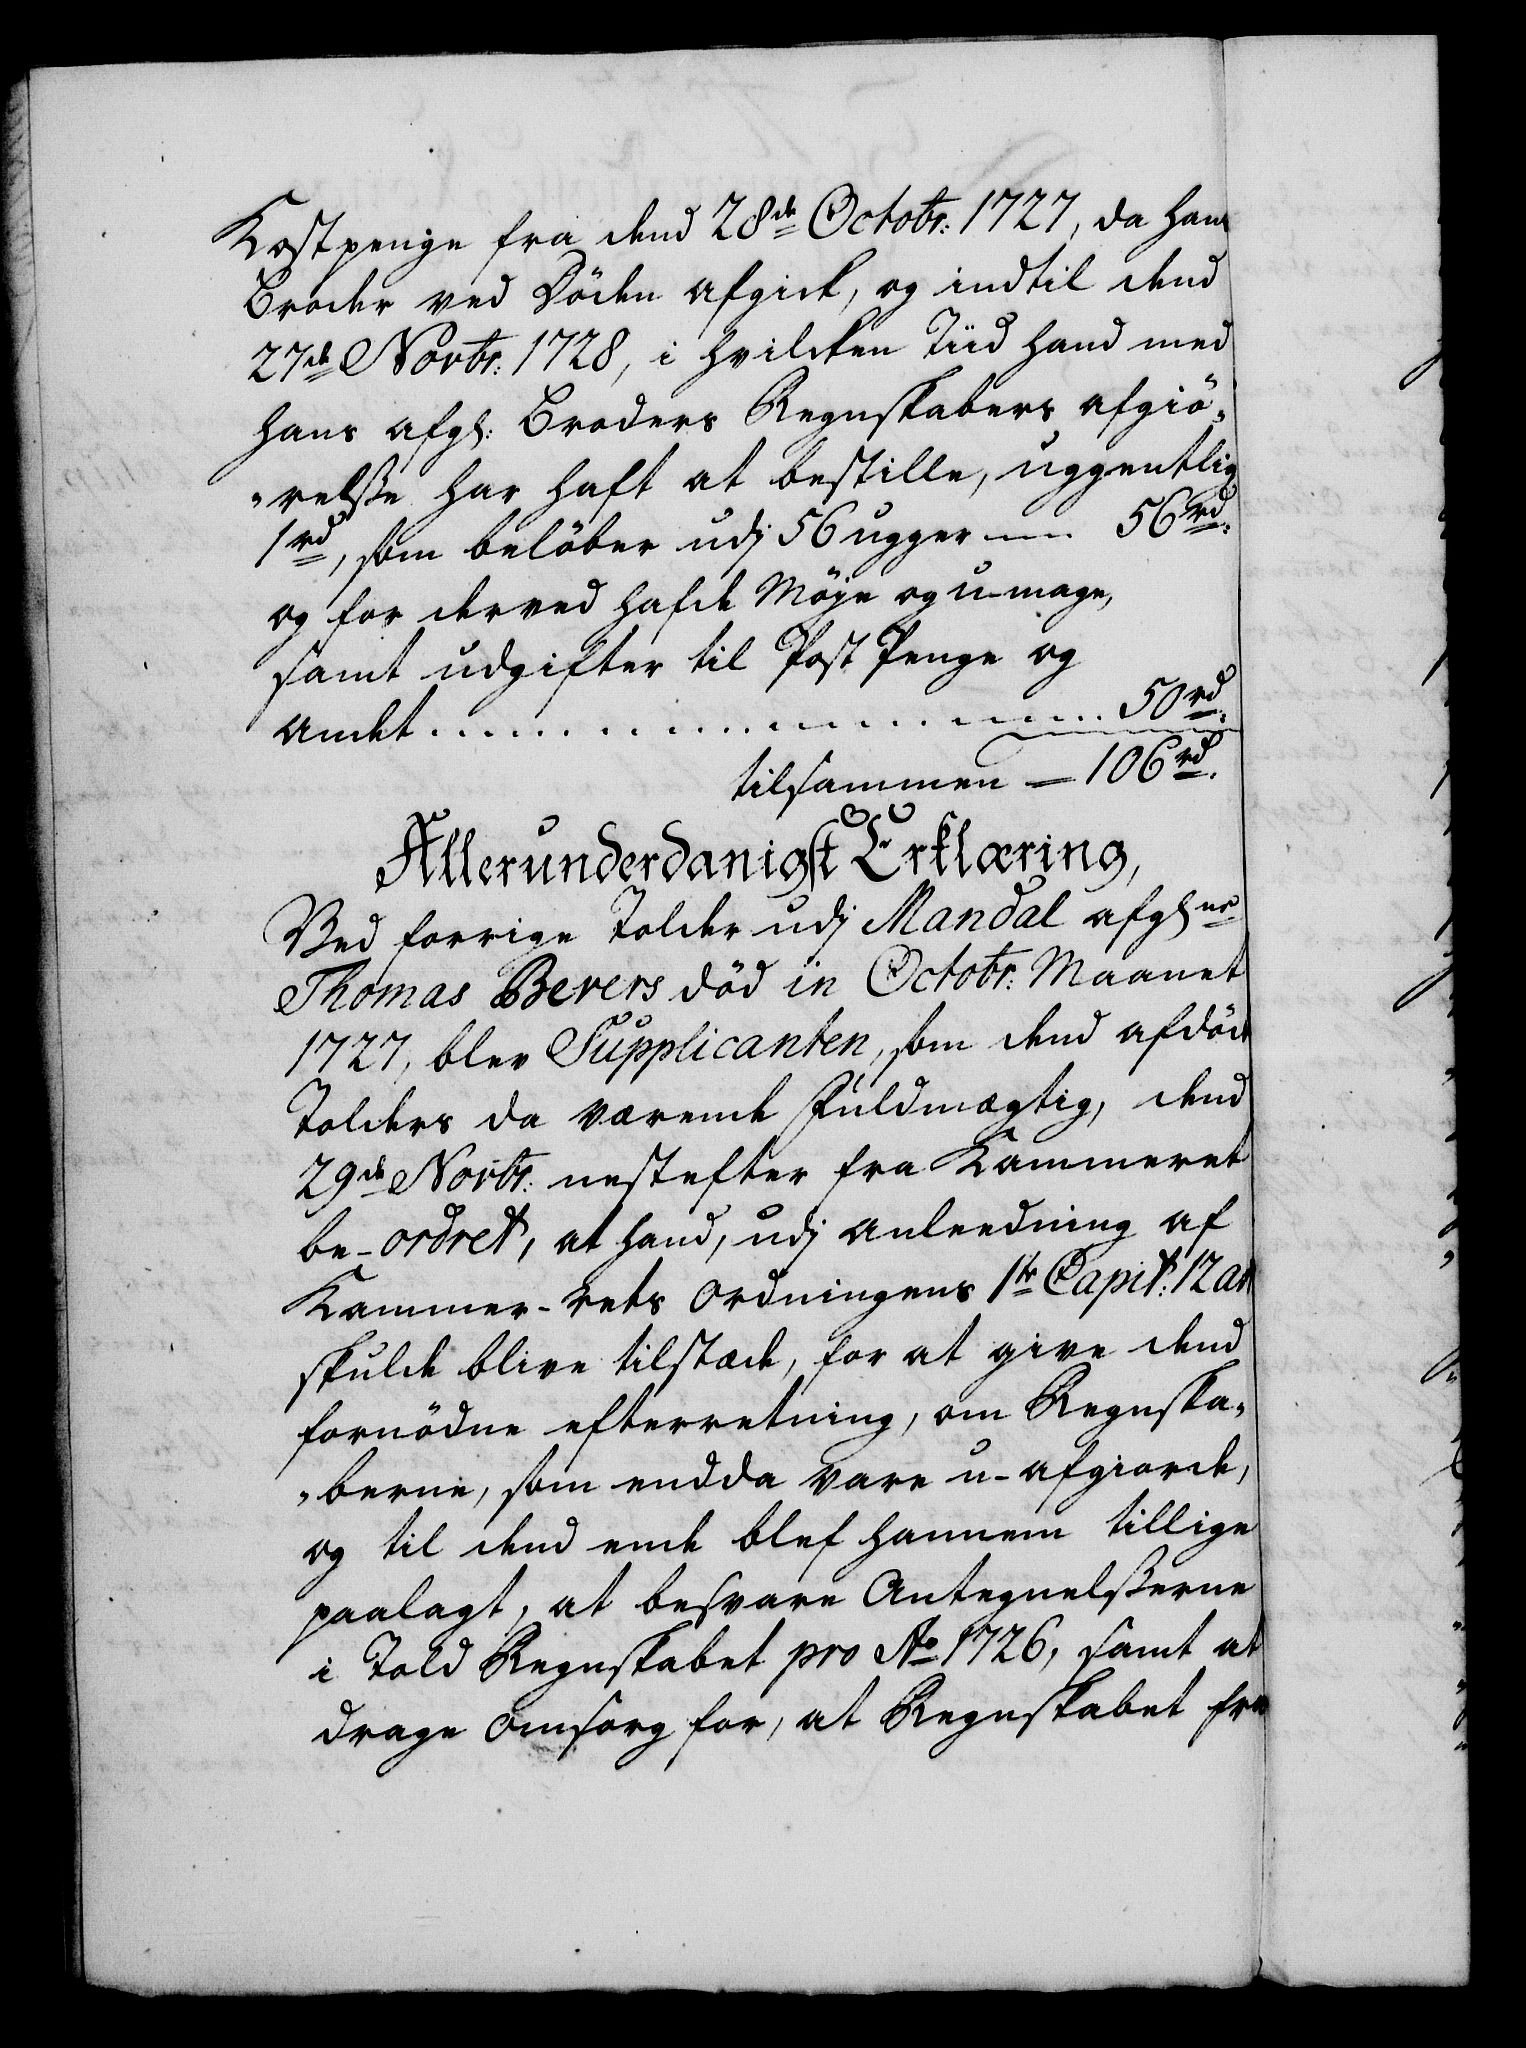 Kostpenge fra dend 28de Octobr: 1727, da hans
Broder ved Döden afgick, og indtil dend
27de Novbr: 1728, i hvilcken Tiid hand med
hans afgl: Broders Regnskabers afgiö„
„relsse har haft at bestille, uggentlig
1rd, som belöber udj 56 ugger — 56rd:
og for derved hafde Möje og u-mage,
samt udgifter til Post Penge og
andet . . . . . . . . . . . . . . . . 50rd:
tilsammen — 106rd.
Allerunderdanigst Erklæring,
Ved forrige Tolder udj Mandal afglne
Thomas Bevers död in Octobr: Maanet
1727, blev Supplicanten, som dend afdöde
Tolders da værende Fuldmægtig, dend
29de Novbr: nestefter fra Kammeret
be-ordret, at hand, udj anleedning af
Kammer-Rets Ordningens 1te Capit: 12 art
skulde blive tilstæde, for at give dend
fornödne efterretning, om Regnska„
„berne, som endda vare u-afgiorde,
og til dend ende blef hannem tillige
paalagt, at besvare Antegnelsserne
i Told Regnskabet pro Ao 1726, samt at
drage omsorg for, at Regnskabet fra